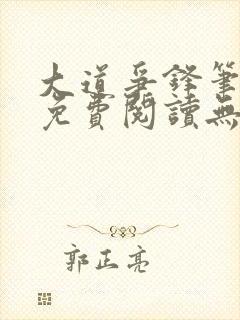 大道爭鋒筆
免費閱讀無
郭正亮